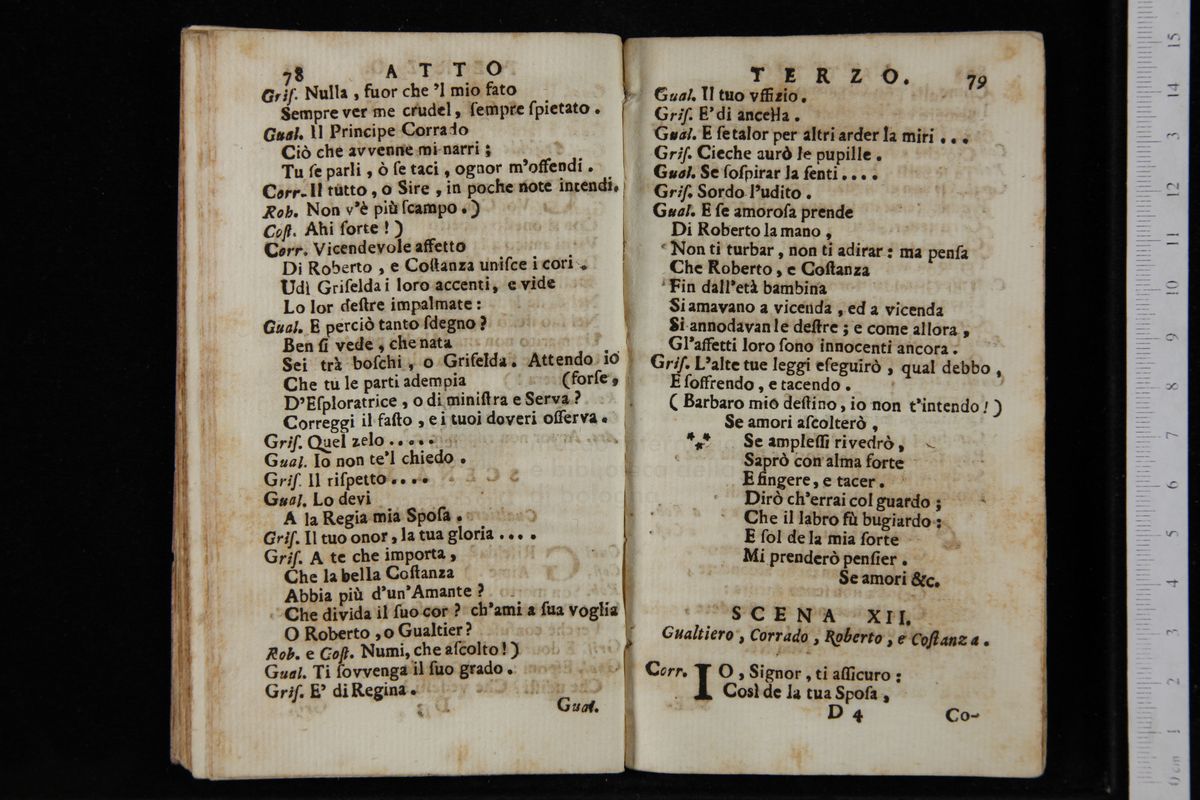 78 ATTO
Griſ. Nulla, fuor che 'l mio fato
Sempre ver me crudel, ſempre ſpietato.
Gual. Il Principe Corrado
Ciò che avvenne mi narri;
Tu ſe parli, ò ſe taci, ognor m'offendi.
Corr. Il tutto, o Sire, in poche note intendi.
Rob. Non v'è più ſcampo.)
Coſt. Ahi ſorte!)
Corr. Vicendevole affetto
Di Roberto, e Coſtanza uniſce i cori.
Udì Griſelda i loro accenti, e vide
Lo lor deſtre impalmate:
Gual. E perciò tanto ſdegno?
Ben ſi vede, che nata
Sei trà boſchi, o Griſelda. Attendo io
Che tu le parti adempia (forſe,
D'Eſploratrice, o di miniſtra e Serva?
Correggi il faſto, e i tuoi doveri oſſerva.
Griſ. Quel zelo.....
Gual. Io non te'l chiedo.
Griſ. Il riſpetto....
Gual. Lo devi
A la Regia mia Spoſa.
Griſ. Il tuo onor, la tua gloria....
Griſ. A te che importa,
Che la bella Coſtanza
Abbia più d'un'Amante?
Che divida il ſuo cor? ch'ami a ſua voglia
O Roberto, o Gualtier?
Rob. e Coſt. Numi, che aſcolto!)
Gual. Ti ſovvenga il ſuo grado.
Griſ. E' di Regina.
Gual.
TERZO. 79
Gual. Il tuo vffizio.
Griſ. E' di ancella.
Gual. E ſe talor per altri arder la miri...
Griſ. Cieche aurò le pupille.
Gual. Se ſoſpirar la ſenti....
Griſ. Sordo l'udito.
Gual. E ſe amoroſa prende
Di Roberto la mano,
Non ti turbar, non ti adirar: ma penſa
Che Roberto, e Coſtanza
Fin dall'età bambina
Si amavano a vicenda, ed a vicenda
Si annodavan le deſtre; e come allora,
Gl'affetti loro ſono innocenti ancora.
Griſ. L'alte tue leggi eſeguirò, qual debbo,
E ſoffrendo, e tacendo.
(Barbaro mio deſtino, io non t'intendo!)
Se amori aſcolterò,
*** Se ampleſſi rivedrò,
Saprò con alma forte
E fingere, e tacer.
Dirò ch'errai col guardo;
Che il labro fù bugiardo:
E ſol de la mia ſorte
Mi prenderò penſier.
Se amori &c.
SCENA XII.
Gualtiero, Corrado, Roberto, e Coſtanza.
Corr. IO, Signor, ti aſſicuro:
Così de la tua Spoſa,
D 4 Co-